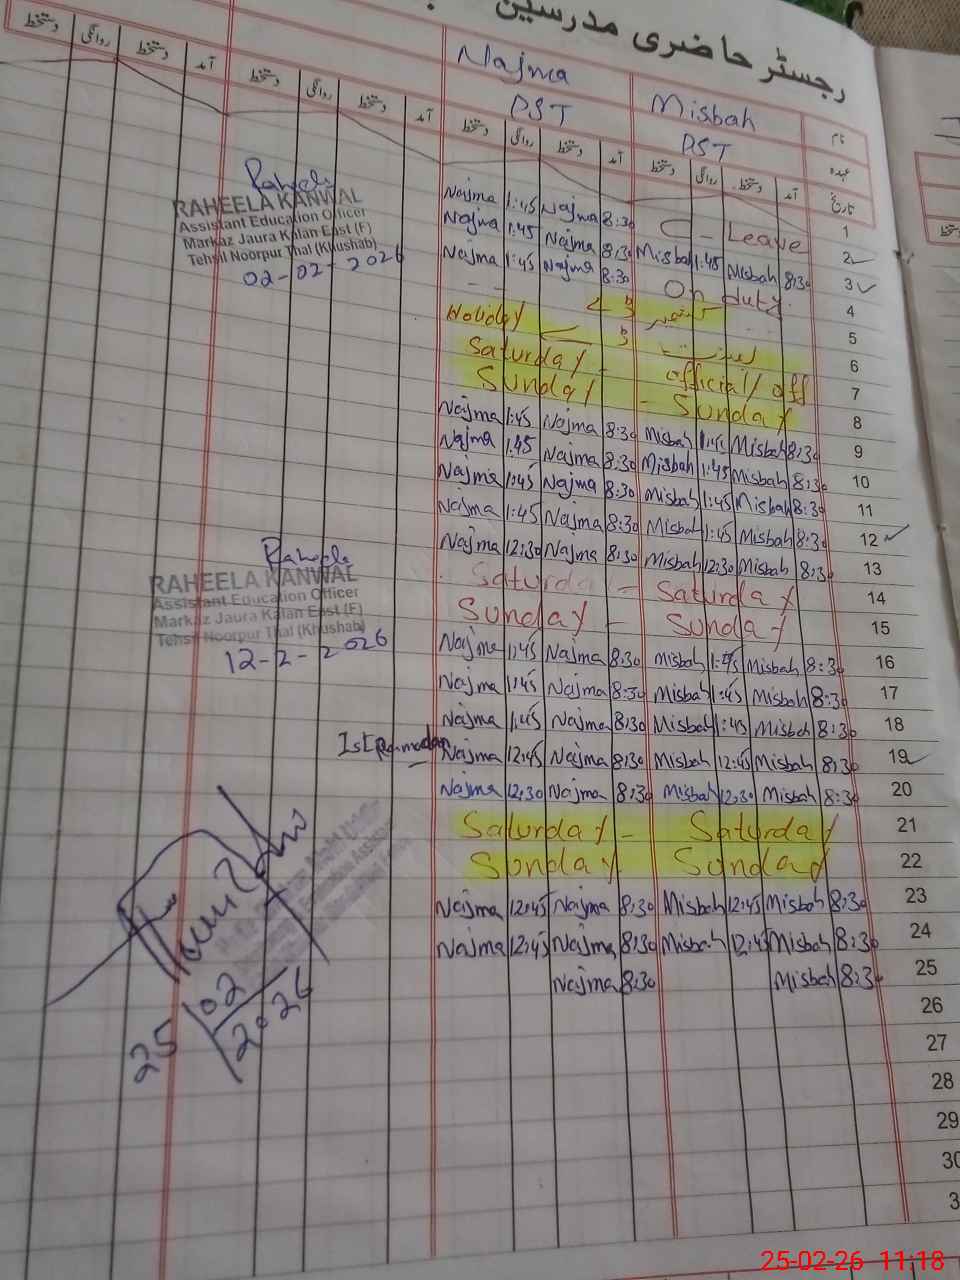 رجسٹر حاضری مدرسین
نام Misbah Najma
عہدہ PST PST
تاریخ آمد دستخط روانگی دستخط آمد دستخط روانگی دستخط آمد دستخط روانگی دستخط آمد دستخط روانگی دستخط
Najma 1:45 Najma 8:30 C - Leave 1
Najma 1:45 Najma 8:30 Misbah 1:45 Misbah 8:30 2
Najma 1:45 Najma 8:30 On duty. 3
4
Holiday 5
6
Saturday - official off 7
Sunday - Sunday 8
Najma 1:45 Najma 8:30 Misbah 1:45 Misbah 8:30 9
Najma 1:45 Najma 8:30 Misbah 1:45 Misbah 8:30 10
Najma 1:45 Najma 8:30 Misbah 1:45 Misbah 8:30 11
Najma 1:45 Najma 8:30 Misbah 1:45 Misbah 8:30 12
Najma 12:30 Najma 8:30 Misbah 12:30 Misbah 8:30 13
Saturday - Saturday 14
Sunday - Sunday 15
Najma 1:45 Najma 8:30 Misbah 1:45 Misbah 8:30 16
Najma 1:45 Najma 8:30 Misbah 1:45 Misbah 8:30 17
Najma 1:45 Najma 8:30 Misbah 1:45 Misbah 8:30 18
1st Ramadan Najma 12:45 Najma 8:30 Misbah 12:45 Misbah 8:30 19
Najma 12:30 Najma 8:30 Misbah 12:30 Misbah 8:30 20
Saturday - Saturday 21
Sunday Sunday 22
Najma 12:45 Najma 8:30 Misbah 12:45 Misbah 8:30 23
Najma 12:45 Najma 8:30 Misbah 12:45 Misbah 8:30 24
Najma 8:30 Misbah 8:30 25
26
27
28
29
30
3
Raheela
RAHEELA KANWAL
Assistant Education Officer
Markaz Jaura Kalan East (F)
Tehsil Noorpur Thal (Khushab)
02-02-2026
Raheela
RAHEELA KANWAL
Assistant Education Officer
Markaz Jaura Kalan East (F)
Tehsil Noorpur Thal (Khushab)
12-2-2026
25/02/2026
25-02-26 11:18